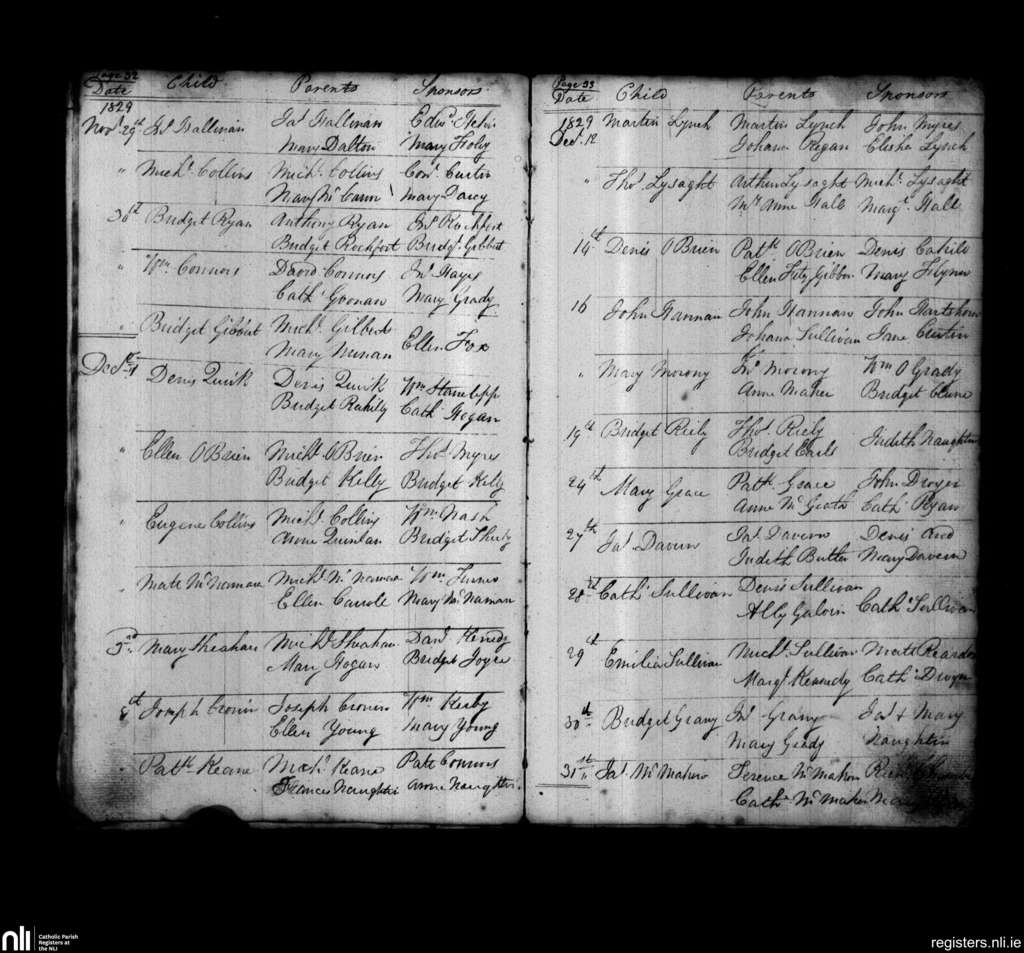 Page 32
Date Child Parents Sponsors
1829
Novr 29th Js Hallinan Jas Hallinan Edwd
Mary Dalton Mary Foley
" Michl Collins Michl Collins Cons Curtin
Mary Mc Cann Mary Darcy
30th Bridget Ryan Anthony Ryan Js Rochfort
Bridget Rochfort Bridgt Gibbert
" Wm Connors David Connors Jno Hayes
Cath Goonan Mary Grady
" Bridget Gibbert Michl Gilbert
Mary Ellen Fox
Decr 1st Denis Quirk Denis Quirk Wm
Bridget Rahily Cath Hogan
" Ellen O Brien Michl O Brien Thos Myres
Bridget Kelly Bridget Kelly
" Eugene Collins Michl Collins Wm Nash
Anne Quinlan Bridget
" Mate Mc Namara Michl Mc Namara Wm
Ellen Carrole Mary Mc Namara
5th Mary Sheahan Michl Sheahan Danl Kennedy
Mary Hogan Bridget Joyce
8th Joseph Cronin Joseph Cronin Wm Kerby
Ellen Young Mary Young
Patk Keane Michl Keane Patt Connors
Frances Naughtin Anne Naughtin
Page 33
Date Child Parents Sponsors
1829 Martin Lynch Martin Lynch John Myres
Decr 12 Johana Regan Elisha Lynch
" Thos Lysaght Arthur Lysaght Michl Lysaght
Mrs Anne Hall Margt Hall
14th Denis O Brien Patk O Brien Denis Cahill
Ellen Fitz Gibbon Mary Flynn
16 John Hannan John Hannan John Hartshorn
Johana Sullivan Jane Curtin
" Mary Morony Jno Morony Wm O Grady
Anne Maher Bridget Clune
19th Bridget Riely Thos Riely Judith Naughtin
Bridget Earls
24th Mary Grace Patk Grace John Dwyer
Anne Mc Grath Cath Ryan
27th Jas Davern Jas Davern Denis
Judith Butler Mary Davern
28th Cath Sullivan Denis Sullivan
Ally Galvin Cath Sullivan
29th Emilia Sullivan Michl Sullivan Mate Reardon
Margt Kennedy Cath Dwyer
30th Bridget Grany Jno Grany Jas & Mary
Mary Grady Naughtin
31st Jas Mc Mahon Terence Mc Mahon
Cath Mc Mahon
nli
Catholic Parish
Registers at
the NLI
registers.nli.ie